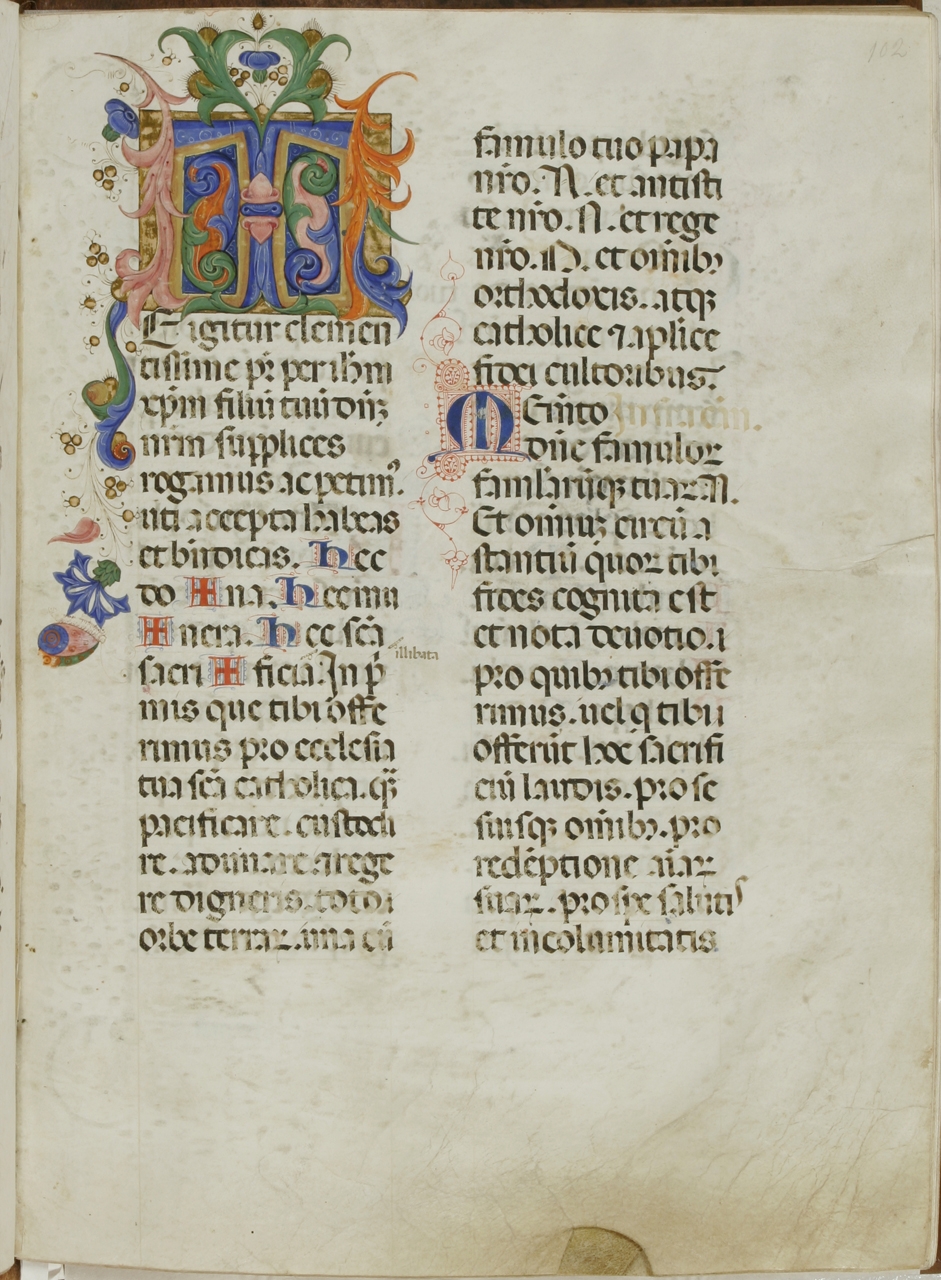 102
T
E igitur clemen
tissime pr̄ per ih̄m
xp̄m filiū tuū dn̄ꝫ
nr̄m supplices
rogamus ac petimꝰ.
uti accepta habeas
et bn̄dicas. Hec
do ✠ na. Hec mu
✠ nera. Hec sc̄a
illibata
sacri ✠ ficia. In p̄
mis que tibi offe
rimus pro ecclesia
tua sc̄a catholica. q̄ꝫ
pacificare. custodi
re. adunare. ⁊ rege
re digneris. toto
orbe terraꝝ. una cū
famulo tuo papa
nr̄o. N. et antisti
te nr̄o. N. et rege
nr̄o. N. et om̄ibꝫ
orthodoxis. atqꝫ
catholice ⁊ ap̄lice
fidei cultoribus.
MEm̄to
dn̄e famuloꝝ
faml̄arūqꝫ tuaꝝ N.
Et om̄iuꝫ circū a
stantiū quoꝝ tibi
fides cognita est
et nota deuotio.
pro quibꝫ tibi offe
rimus. uel q̇ tibi
offerūt hoc sacrifi
ciū laudis. pro se
suisqꝫ om̄ibꝫ. pro
redēptione aīaꝝ
suaꝝ. pro spe salutis
et incolumitatis